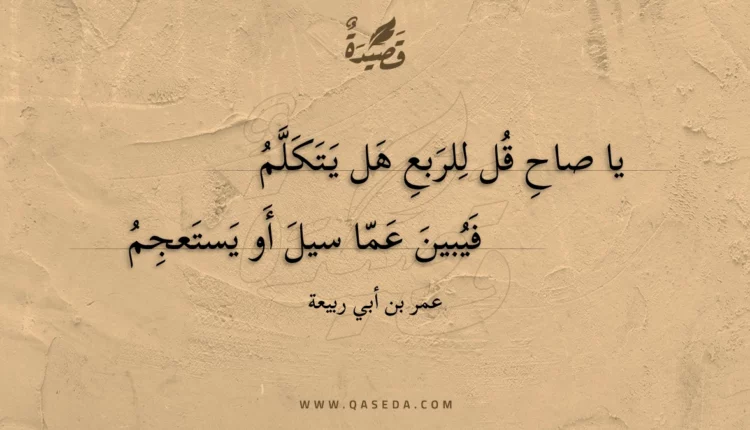 قَصِيْدَةٌ
يا صاحِ قُل لِلرَبعِ هَل يَتَكَلَّمُ
فَيُبينَ عَمّا سيلَ أَو يَستَعجِمُ
عمر بن أبي ربيعة
WWW.QASEDA.COM